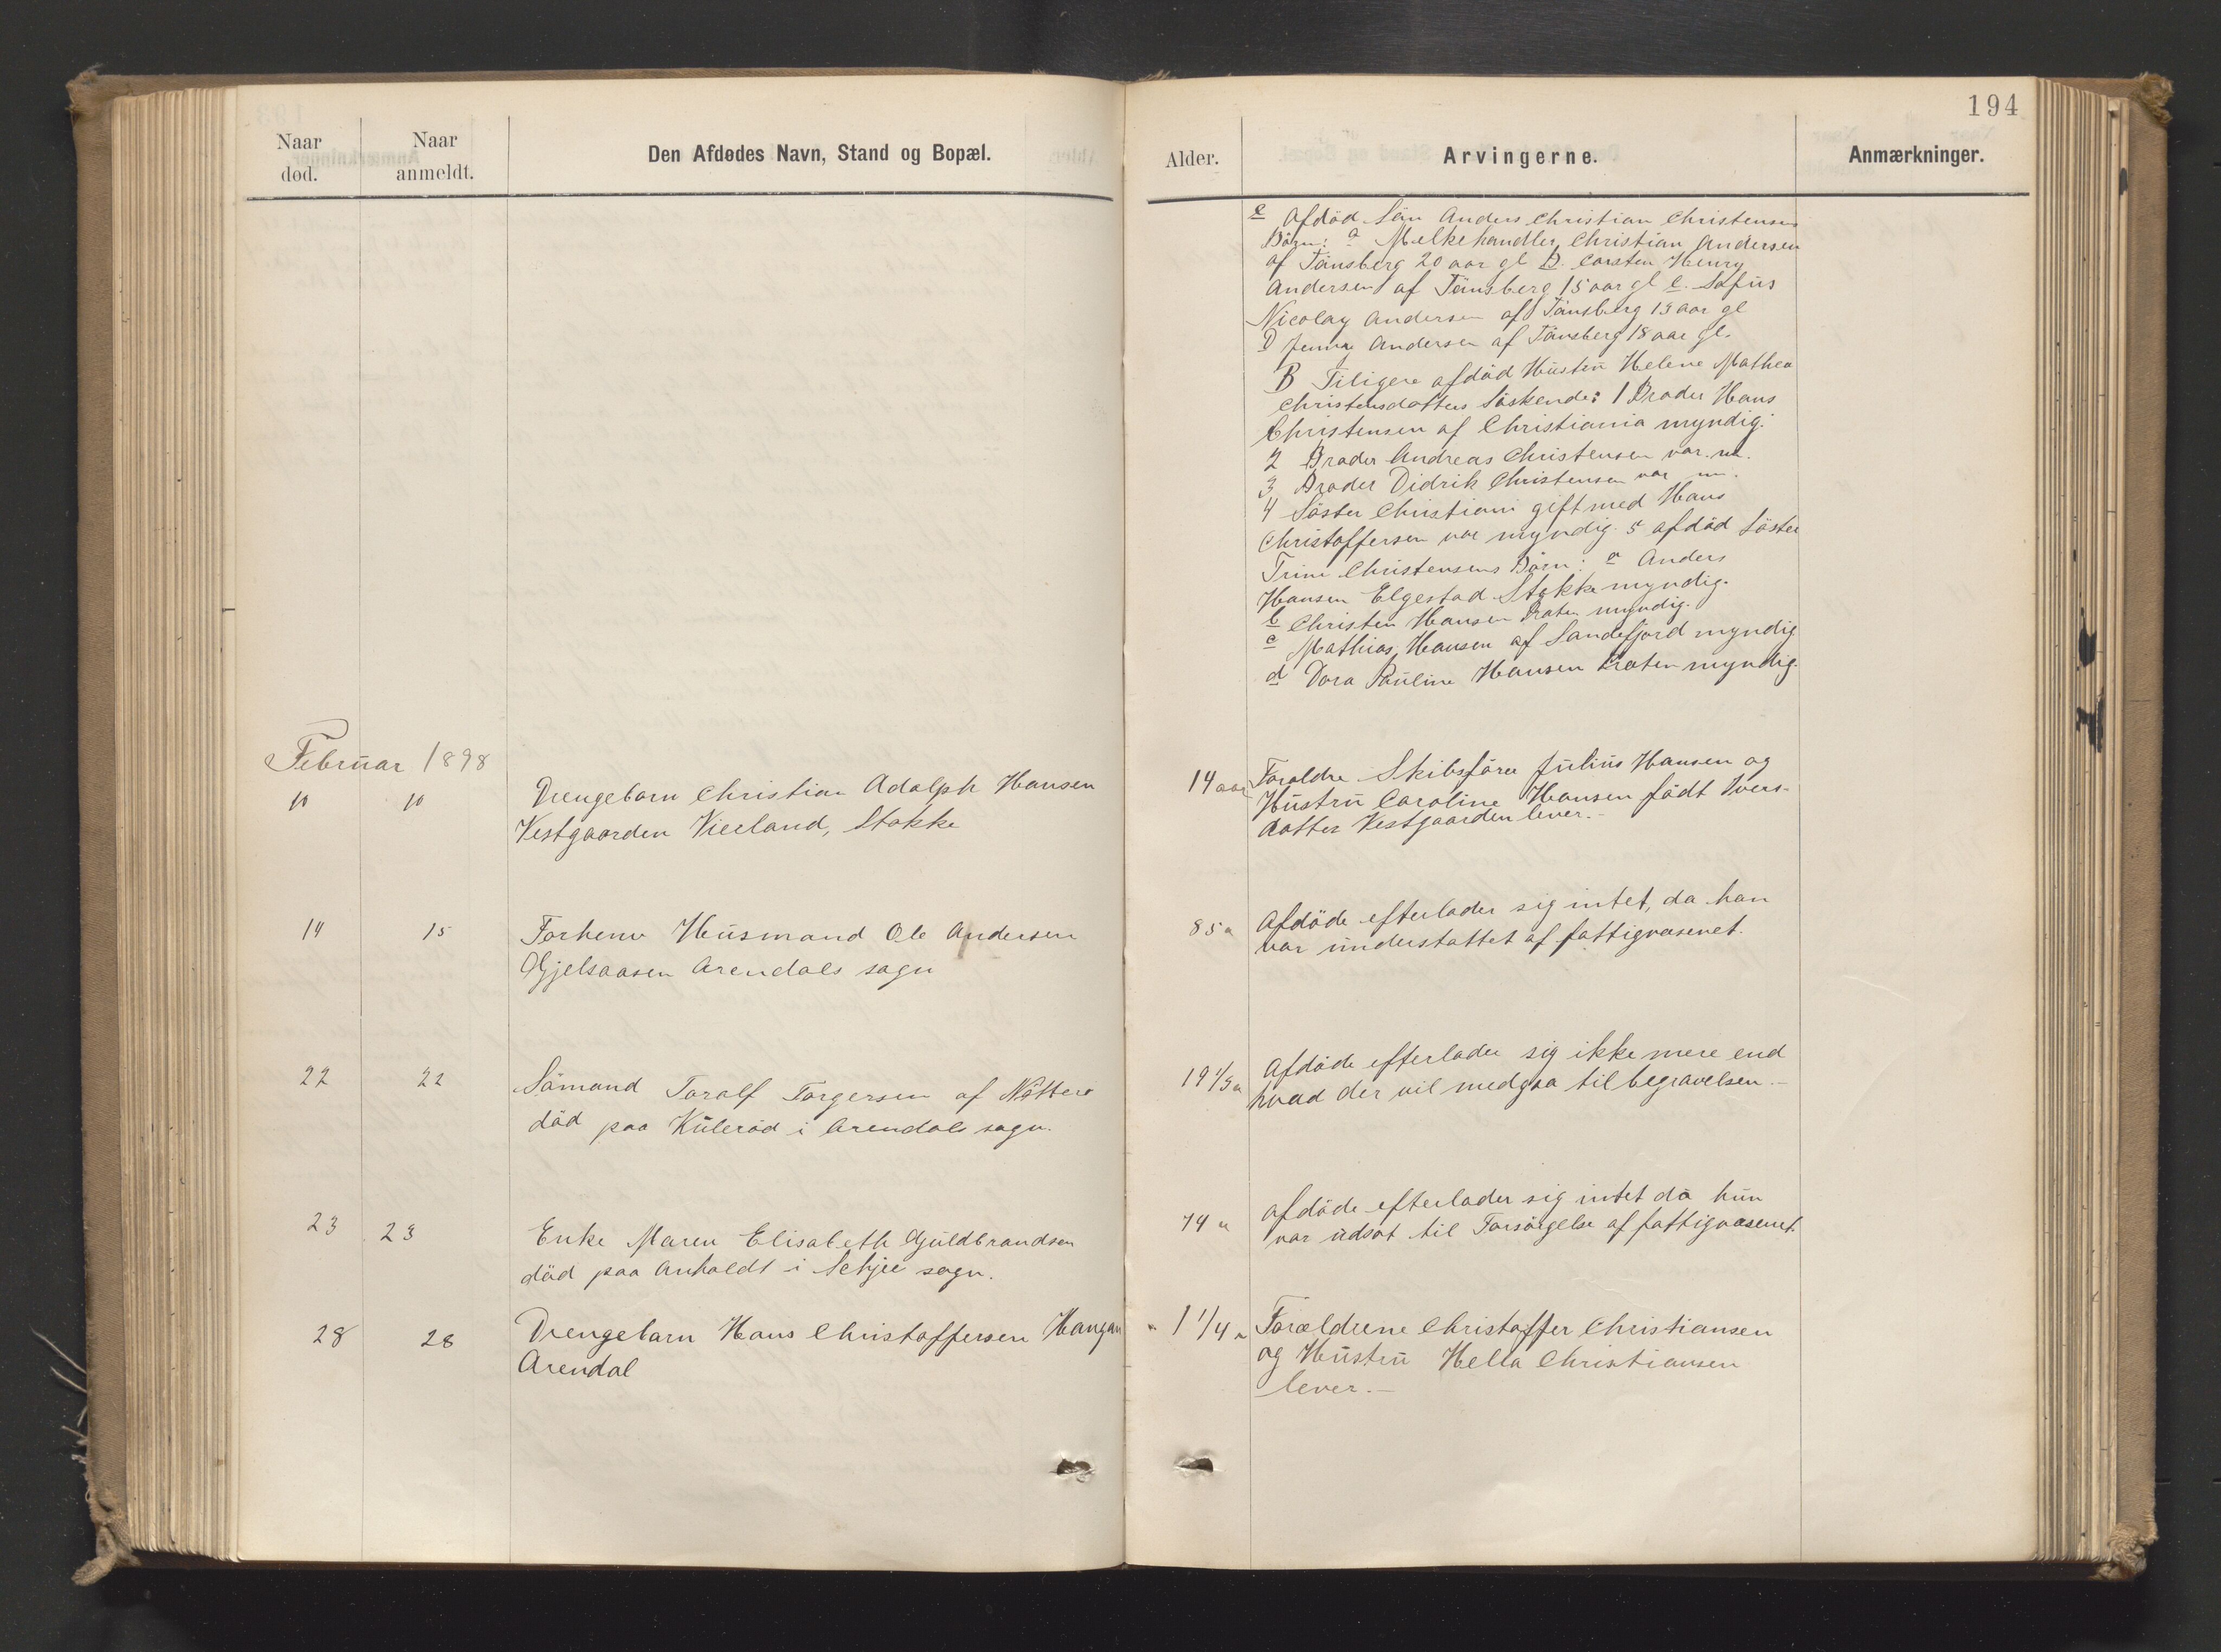 194
Naar død.
Naar anmeldt.
Den Afdødes Navn, Stand og Bopæl.
Alder.
Arvingerne.
Anmærkninger.
e Afdöd Sön Anders Christian Christensens
Börn: a Melkehandler Christian Andersen
af Tönsberg 20 aar gl B. Carsten Henry
Andersen af Tönsberg 15 aar gl C. Sofus
Nicolay Andersen af Tönsberg 13 aar gl
D Jenny Andersen af Tönsberg 18 aar gl.
B Tiligere afdöd Hustru Helene Mathea
Christensdatters Söskende: 1 Broder Hans
Christensen af Christiania myndig.
2 Broder Andreas Christensen var m.
3 Broder Didrik Christensen var m.
4 Söster Christiani gift med Hans
Christoffersen var myndig. 5 afdöd Söster
Trine Christensens Börn: a Anders
Hansen Elgestad Stokke myndig.
b Christen Hansen Braten myndig.
c Mathias Hansen af Sandefjord myndig
d Dora Pauline Hansen Braten myndig.
Februar 1898
10 10 Drengebarn Christian Adolph Hansen
Vestgaarden Vieeland, Stokke
14 aar Foraldre Skibsförer Julius Hansen og
Hustru Caroline Hansen födt Ivers-
datter Vestgaarden lever.-
14 15 Forhenv Husmand Ole Andersen
Gjelsaasen Arendals sogn
85 a Afdöde efterlader sig intet, da han
var understattet af fattigvasenet.
22 22 Sömand Toralf Torgersen af Nötterö
död paa Kuleröd i Arendals sogn.
19 1/3 a Afdöde efterlader sig ikke mere end
hvad der vil medgaa til begravelsen.-
23 23 Enke Maren Elisabeth Guldbrandsen
död paa Anholdt i Schjee sogn.
74 a afdöde efterlader sig intet da hun
var udsat til Forsörgelse af fattigvæsenet.
28 28 Drengebarn Hans Christoffersen Haugan
Arendal
1 1/4 a Forældrene Christoffer Christiansen
og Hustru Hella Christiansen
lever.-